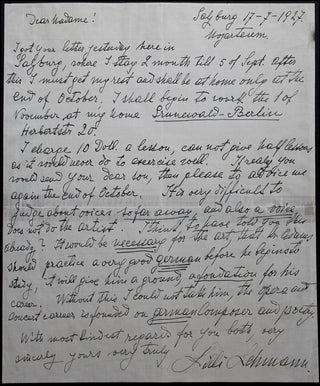 Dear Madame!
Salzburg 17-7-1927.
Mozarteum.
I got your letter yesterday here in
Salzburg, where I stay 2 month till 5 of Sept. After
this I must get my rest and shall be at home only at the
end of October. I shall begin to work the 1 of
November at my home Grunewald-Berlin
Herbertstr 20.
I charge 10 Doll. a lesson, can not give half lessons
as it would never do to exercise well. If really you
would send your dear son, then please to advice me
again the end of October. It is very difficult to
judge about voices so far away, and also a voice
does not do the artist. I think, to have told you this
already? It would be necessary for the art, that he
should practice a very good german before he begins to
study, it will give him a ground, a foundation for his
career. Without this I could not take him, the opera and
concert career is founded on german composer and poetry.
With most kindest regards for you both, very
sincerly yours very truly
Lilli Lehmann